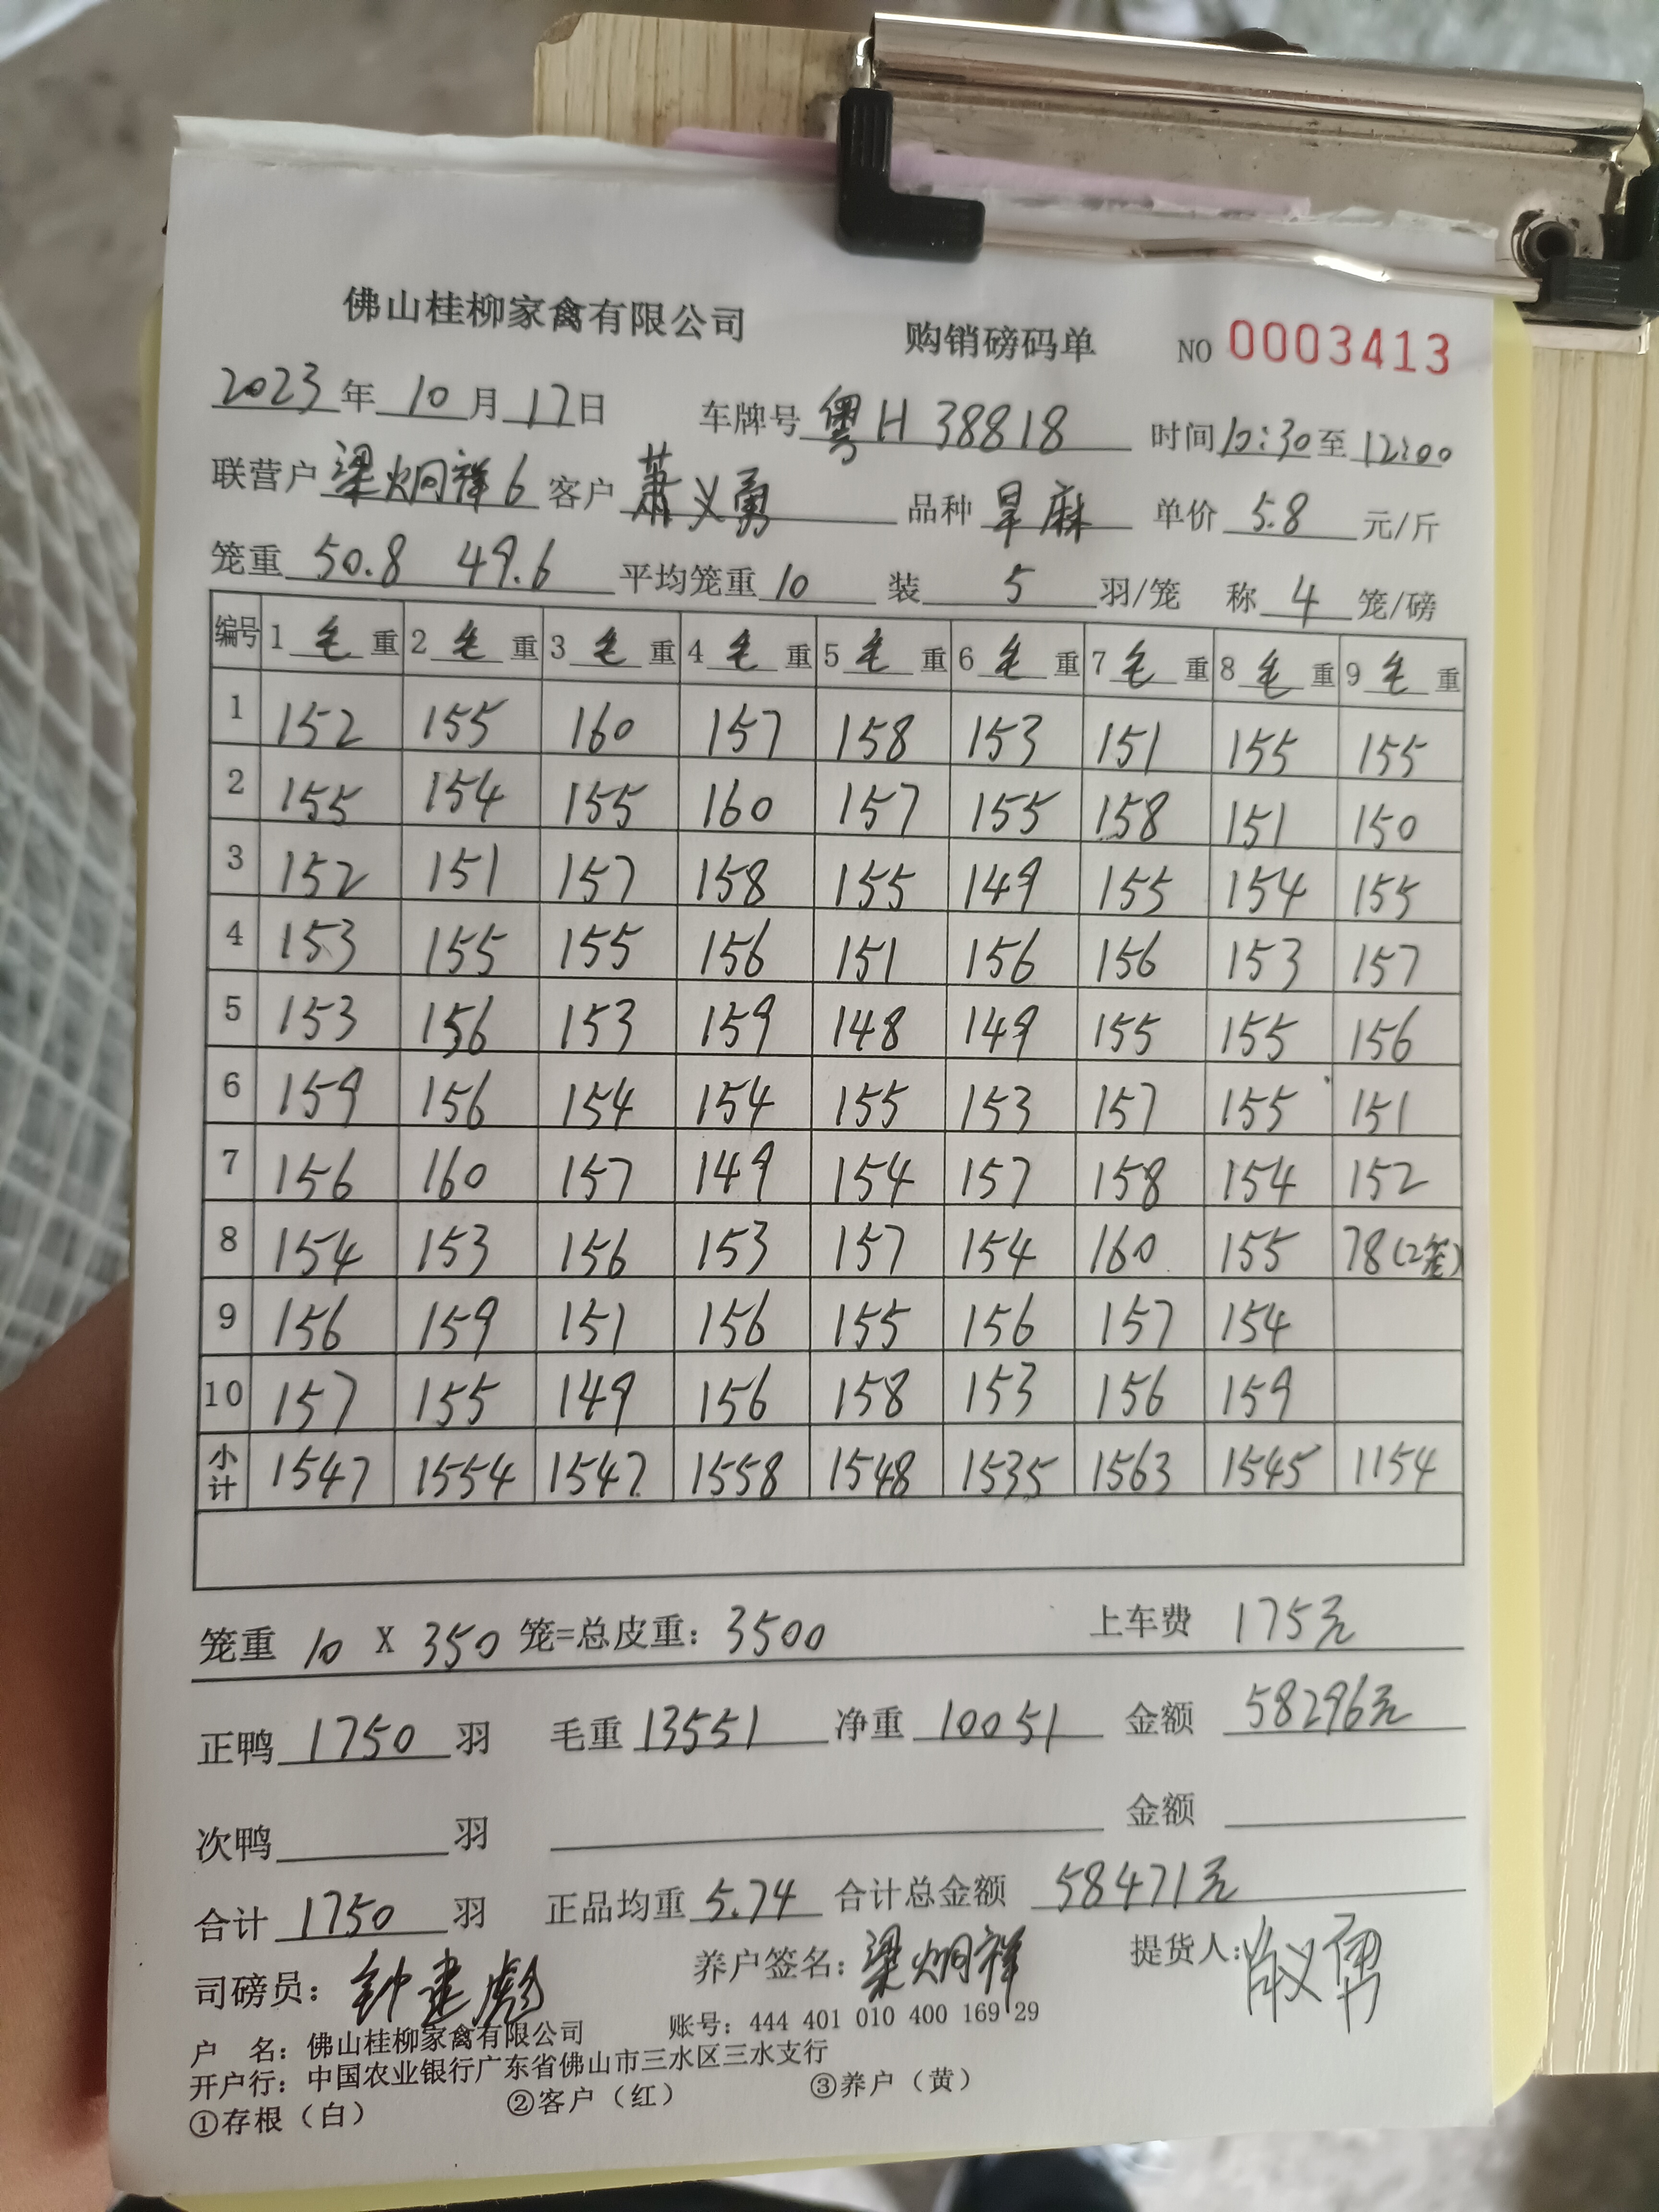 佛山桂柳家禽有限公司 购销磅码单 NO 0003413
2023年10月17日 车牌号 粤H 38818 时间10:30至12:00
联营户 梁炯祥6 客户 萧义勇 品种 旱麻 单价 5.8 元/斤
笼重 50.8 49.6 平均笼重 10 装 5 羽/笼 称 4 笼/磅
编号 1 毛 重 2 毛 重 3 毛 重 4 毛 重 5 毛 重 6 毛 重 7 毛 重 8 毛 重 9 毛 重
1 152 155 160 157 158 153 151 155 155
2 155 154 155 160 157 155 158 151 150
3 152 151 157 158 155 149 155 154 155
4 153 155 155 156 151 156 156 153 157
5 153 156 153 159 148 149 155 155 156
6 159 156 154 154 155 153 157 155 151
7 156 160 157 149 154 157 158 154 152
8 154 153 156 153 157 154 160 155 78(2笼)
9 156 159 151 156 155 156 157 154
10 157 155 149 156 158 153 156 159
小计 1547 1554 1547 1558 1548 1535 1563 1545 1154
笼重 10 X 350 笼=总皮重：3500 上车费 175元
正鸭 1750 羽 毛重 13551 净重 10051 金额 58296元
次鸭 羽 金额
合计 1750 羽 正品均重 5.74 合计总金额 58471元
司磅员：钟建彪 养户签名：梁炯祥 提货人：肖义勇
户 名：佛山桂柳家禽有限公司 账号：444 401 010 400 169 29
开户行：中国农业银行广东省佛山市三水区三水支行
①存根（白） ②客户（红） ③养户（黄）